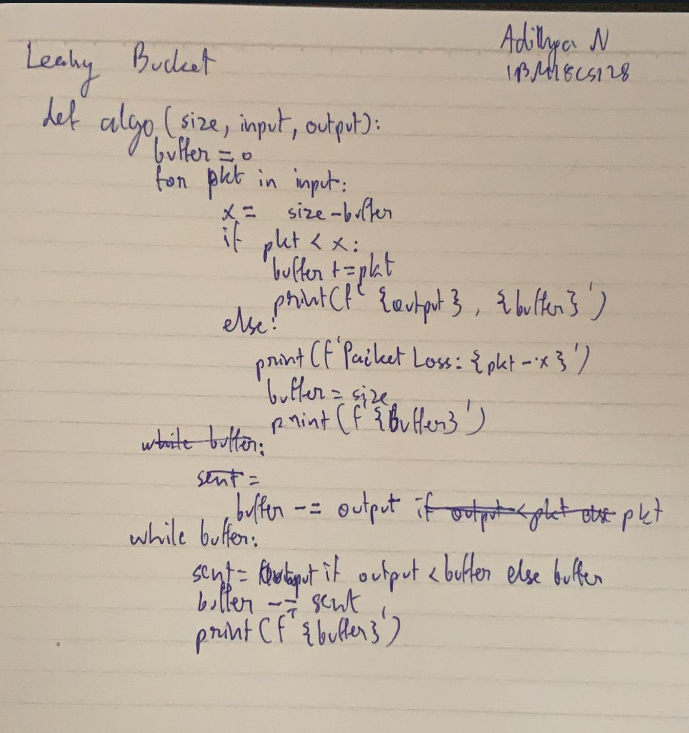 Adithya N
Leaky Bucket
1BM18CS128
def algo (size, input, output):
buffer = 0
for pkt in input:
x = size - buffer
if pkt < x:
buffer += pkt
print(f'{output}, {buffer}')
else:
print(f'Packet Loss: {pkt - x}')
buffer = size
print(f'{Buffer}')
while buffer:
sent =
buffer -= output if output < pkt else pkt
while buffer:
sent = output if output < buffer else buffer
buffer -= sent
print(f'{buffer}')